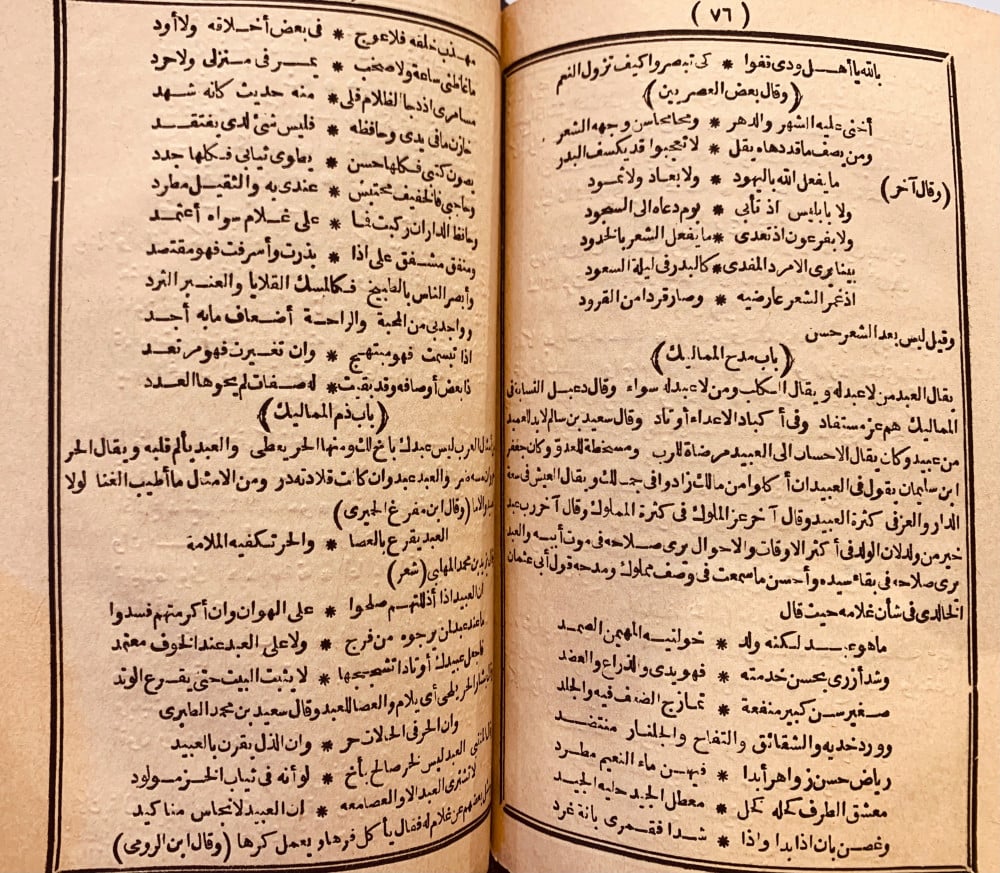 (٧٦)
بالله يا أهل ودى قفوا * كى تبصروا كيف تزول النعم
(وقال بعض العصريين)
أخنى عليه الشهر والدهر * ومحا محاسن وجهه الشعر
ومن يصف ما قد دهاه يقل * لا تعجبوا قد يكسف البدر
(وقال آخر) ما يفعل الله باليهود * ولا بعاد ولا ثمود
ولا بابليس اذ تأبى * يوم دعاه الى السجود
ولا بفرعون اذ تعدى * ما يفعل الشعر بالخدود
بينا يرى الامرد المفدى * كالبدر فى ليلة السعود
اذ غمر الشعر عارضيه * وصار قردا من القرود
وقيل ليس بعد الشعر حسن
(باب مدح المماليك)
يقال العبد من لا عبد له ويقال الكلب ومن لا عبد له سواء وقال دعبل النسابة فى
المماليك هم عز مستفاد وفى أكباد الاعداء أوتاد وقال سعيد بن سالم لا بد للعميد
من عبيد وكان يقال الاحسان الى العبيد مرضاة للرب ومسخطة للعدو وكان جعفر
ابن سليمان يقول فى العبيد ان أكلوا من مالك زادوا فى جمالك ويقال العيش فى سعة
الدار والعز فى كثرة العبيد وقال آخر عز الملوك فى كثرة المملوك وقال آخر رب عبد
خير من ولد لان الولد فى أكثر الاوقات والاحوال يرى صلاحه فى موت أبيه والعبد
يرى صلاحه فى بقاء سيده وأحسن ما سمعت فى وصف مملوك ومدحه قول أبى عثمان
الخالدى فى شأن غلامه حيث قال
ما هو عبد لكنه ولد * خولنيه المهيمن الصمد
وشد أزرى بحسن خدمته * فهو يدى والذراع والعضد
صغير سن كبير منفعة * تمازج الضعف فيه والجلد
وورد خديه والشقائق والتفاح والجلنار منتضد
رياض حسن زواهر أبدا * فيهن ماء النعيم مطرد
معشق الطرف كحله كحل * معطل الجيد حليه الجيد
وغصن بان اذا بدا واذا * شدا فقمرى بانة غرد
مهذب خلقه فلا عوج * فى بعض أخلاقه ولا أود
ما غاظنى ساعة ولا صخب * يمر فى منزلى ولا حرد
مسامرى اذ دجا الظلام فلى * منه حديث كأنه شهد
خازن ما فى يدى وحافظه * فليس شئ لدى يفتقد
يصون كتبى فكلها حسن * يطوى ثيابى فكلها جدد
وحاجبى فالخفيف محتبس * عندى به والثقيل مطرد
وحافظ الدار ان ركبت فما * على غلام سواه أعتمد
ومنفق مشفق على اذا * بذرت وأسرفت فهو مقتصد
وأبصر الناس بالطبيخ فكالمسك القلايا والعنبر الثرد
وواجد بى من المحبة والراحة أضعاف ما به أجد
اذا تبسمت فهو مبتهج * وان تغيرت فهو مرتعد
ذا بعض أوصافه وقد بقيت * له صفات لم يحوها العدد
(باب ذم المماليك)
العرب ليس عبدك بأخ لك ومنها الحر يعطى والعبد يألم قلبه ويقال الحر
والعبد عبد وان كانت قلادته در ومن الامثل ما أطيب الغنا لولا
(وقال ابن مفرغ الحميرى)
العبد يقرع بالعصا * والحر تكفيه الملامة
بن محمد المهلبى (شعر)
ان العبيد اذا أذللتهم صلحوا * على الهوان وان أكرمتهم فسدوا
ما عند عبد لمن يرجوه من فرج * ولا على العبد عند الخوف معتمد
فاجعل عبيدك أوتادا تشججها * لا يثبت البيت حتى يقرع الوتد
الحر يلحى أى يلام والعصا للعبد وقال سعيد بن محمد الطبرى
وان الحر فى الحالات حر * وان الذل يقرن بالعبيد
العبد ليس لحر صالح بأخ * لو أنه فى ثياب الخز مولود
لا تشترى العبد الا والعصا معه * ان العبيد لانجاس مناكيد
بعضهم عن غلام له فقال يأكل فرها ويعمل كرها (وقال ابن الرومى)